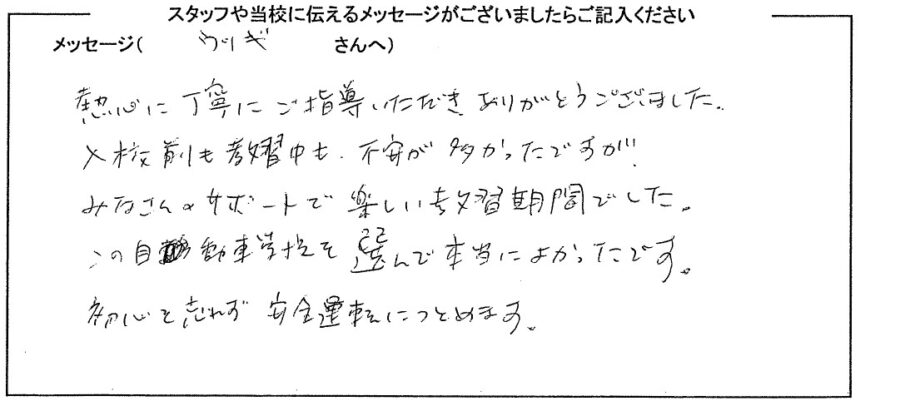 スタッフや当校に伝えるメッセージがございましたらご記入ください
メッセージ( ウリギ さんへ)
熱心に丁寧にご指導いただきありがとうございました。
入校前も教習中も、不安が多かったですが、
みなさんのサポートで楽しい教習期間でした。
この自動車学校を選んで本当によかったです。
初心を忘れず安全運転につとめます。